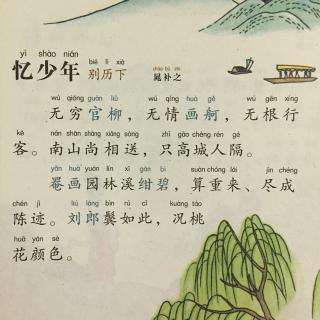 yì shào nián bié lì xià cháo bǔ zhī
忆少年 别历下 晁补之
wú qióng guān liǔ wú qíng huà gě wú gēn xíng
无穷官柳,无情画舸,无根行
kè nán shān shàng xiāng sòng zhǐ gāo chéng rén gé
客。南山尚相送,只高城人隔。
yǎn huà yuán lín xī gàn bì suàn chóng lái jìn chéng
罨画园林溪绀碧,算重来、尽成
chén jì liú láng bìn rú cǐ kuàng táo
陈迹。刘郎鬓如此,况桃
huā yán sè
花颜色。